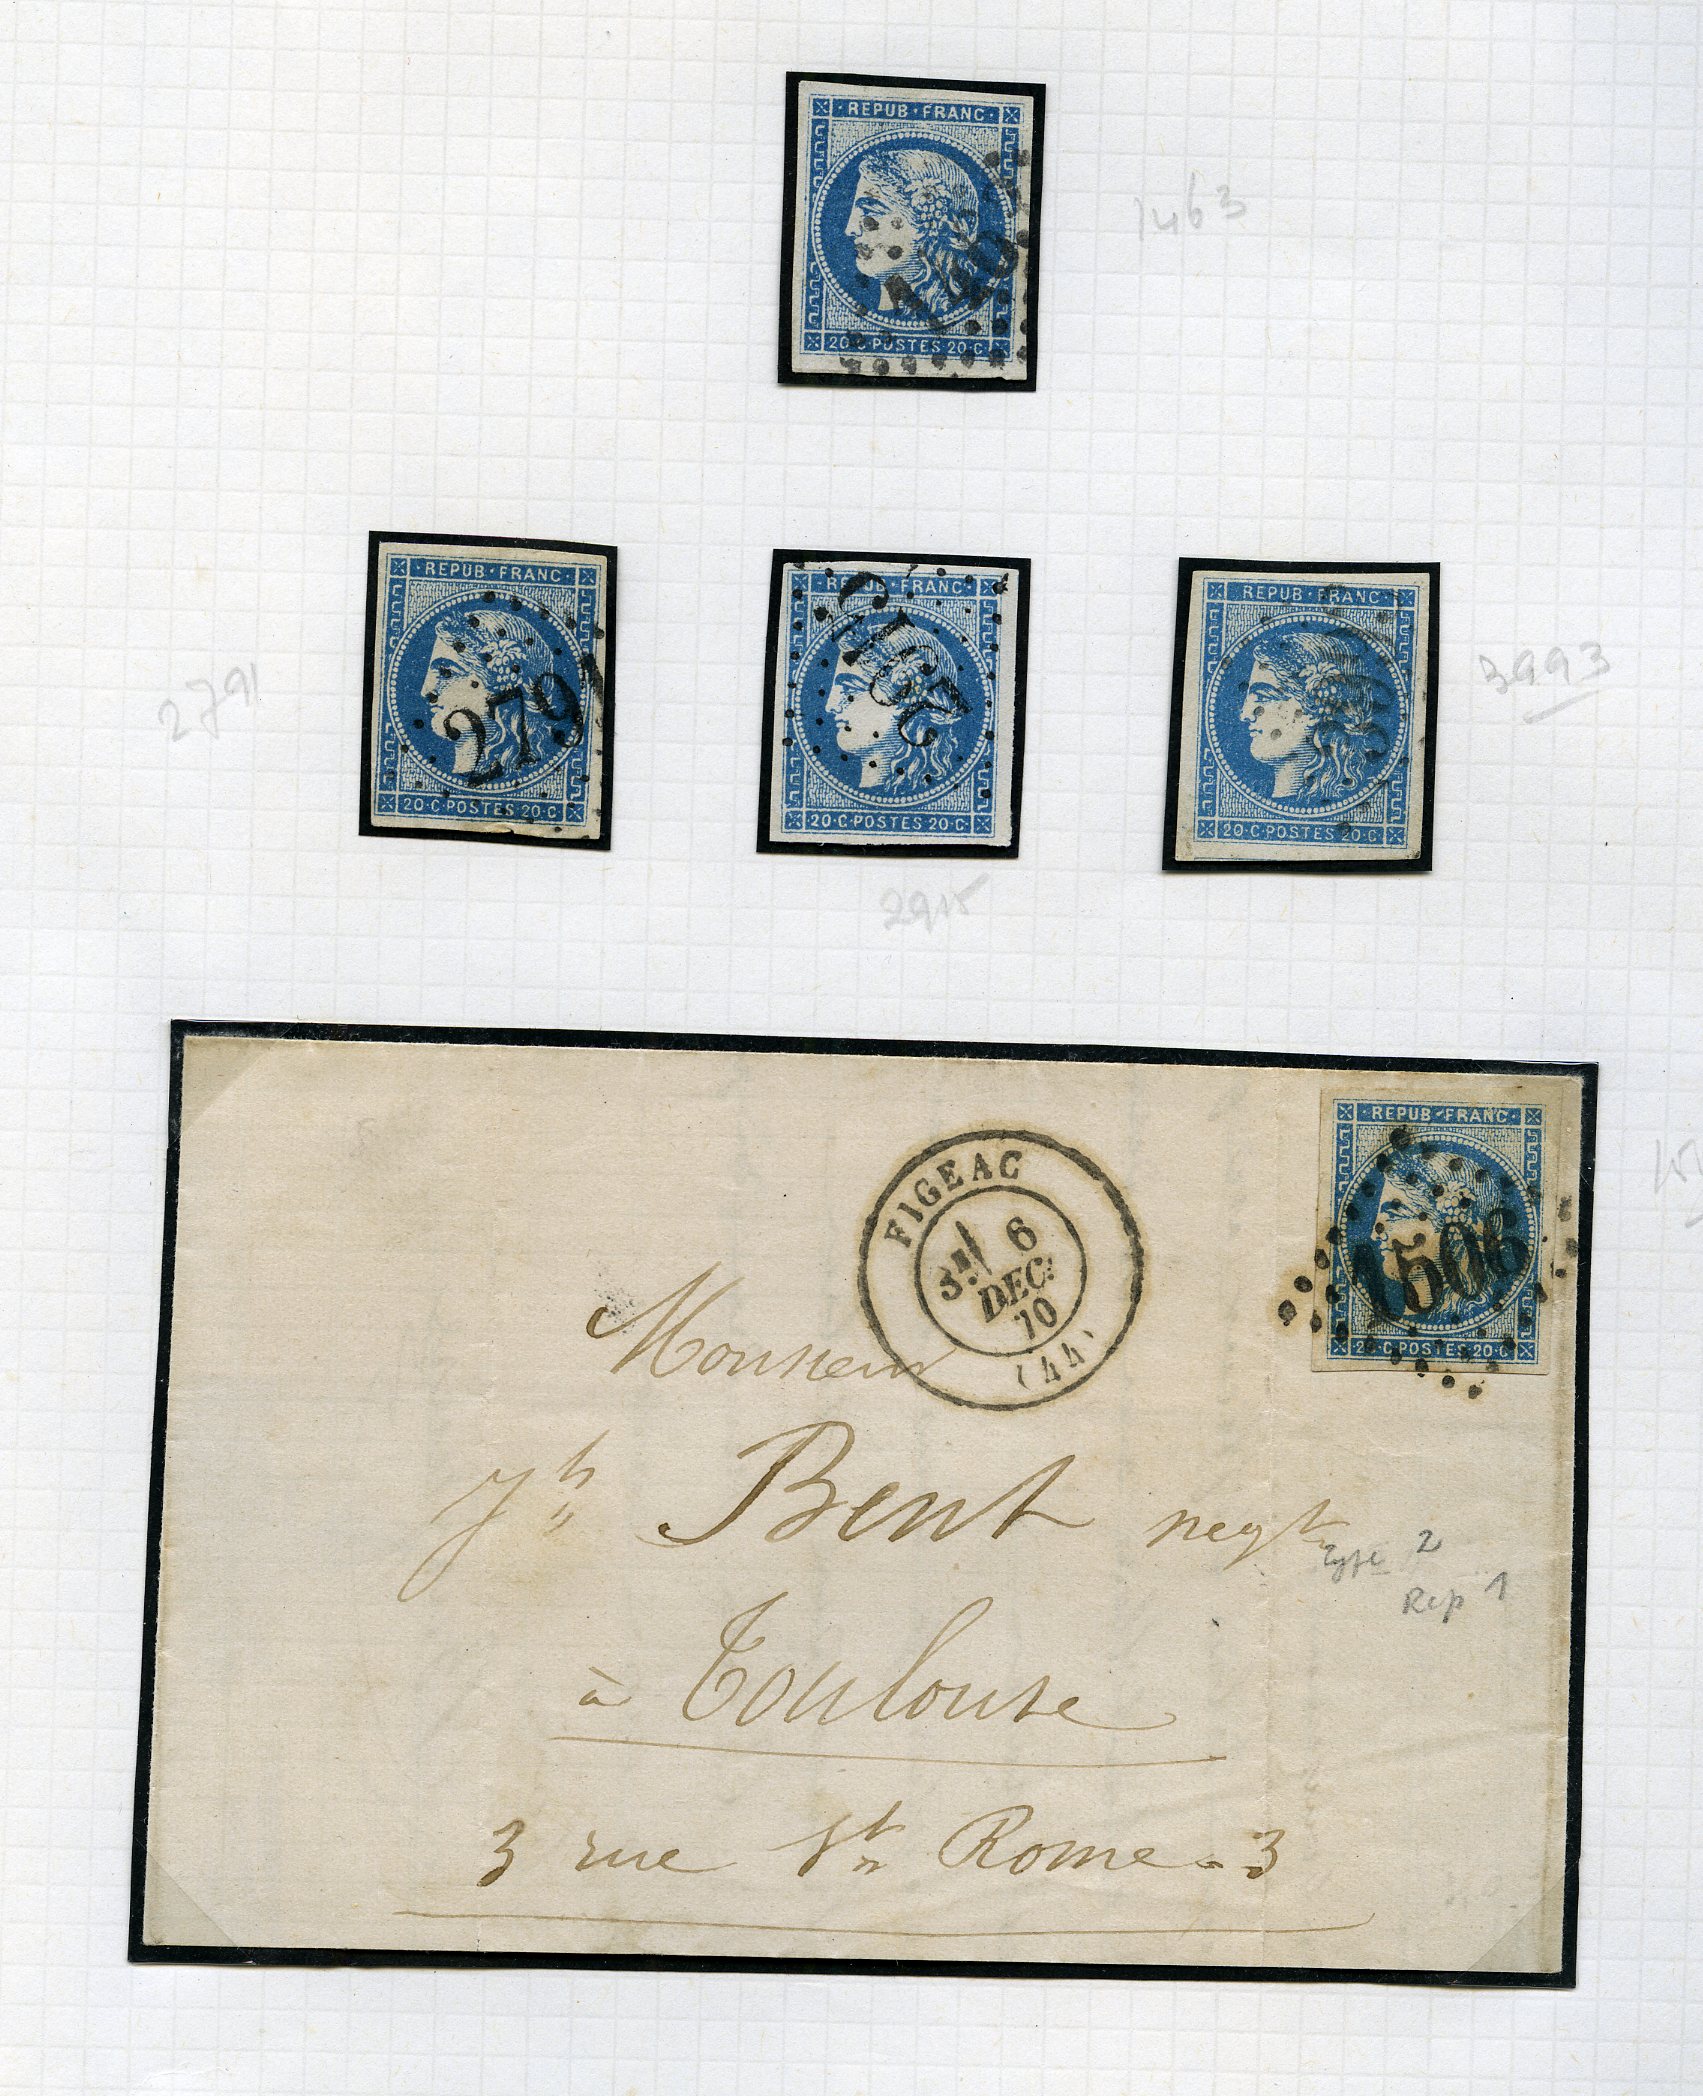 · REPUB · FRANC ·
146
20 · C · POSTES · 20 · C
1463
· REPUB · FRANC ·
2791
20 · C · POSTES · 20 · C
2791
· REPUB · FRANC ·
2915
20 · C · POSTES · 20 · C
2915
· REPUB · FRANC ·
20 · C · POSTES · 20 · C
3993
· REPUB · FRANC ·
1506
20 · C · POSTES · 20 · C
FIGEAC
6
DEC.
70
(44)
Monsieur
Jh Bent negt
Type 2
Rep 1
à Toulouse
3 rue St Rome - 3